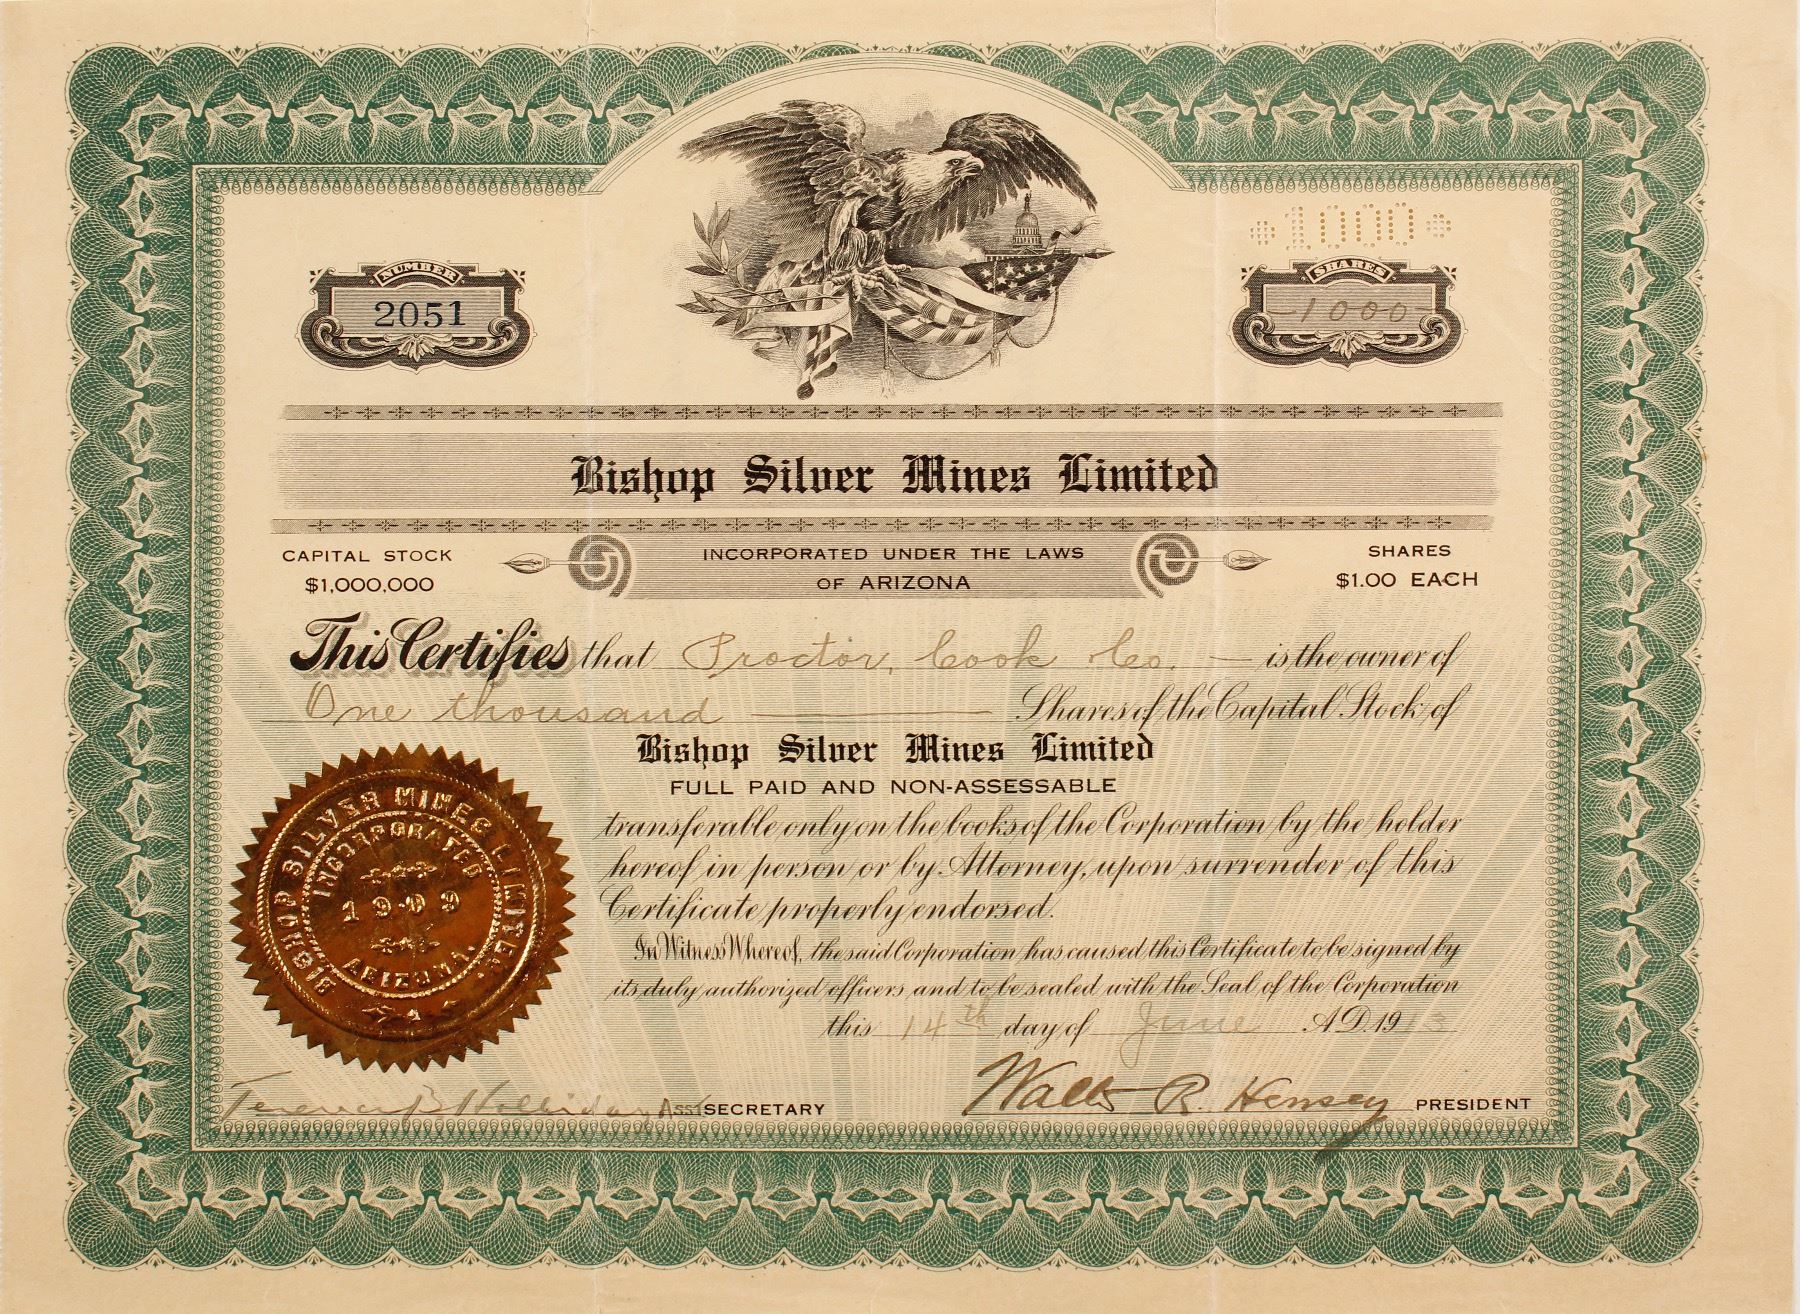 *1000*
NUMBER
2051
SHARES
-1000-
Bishop Silver Mines Limited
CAPITAL STOCK
$1,000,000
INCORPORATED UNDER THE LAWS
OF ARIZONA
SHARES
$1.00 EACH
This Certifies that Proctor, Cook Co. — is the owner of
One thousand — Shares of the Capital Stock of
Bishop Silver Mines Limited
FULL PAID AND NON-ASSESSABLE
transferable only on the books of the Corporation by the holder
hereof in person or by Attorney, upon surrender of this
Certificate properly endorsed.
In Witness Whereof, the said Corporation has caused this Certificate to be signed by
its duly authorized officers and to be sealed with the Seal of the Corporation
this 14th day of June A.D. 1913
BISHOP SILVER MINES LIMITED.
INCORPORATED
1909
ARIZONA.
B Holliday Asst SECRETARY
Walter R. Hensey PRESIDENT